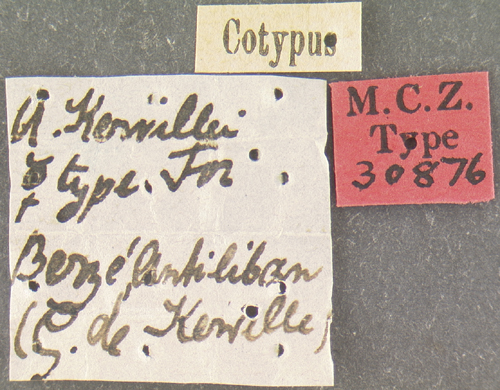 Cotypus
M. Kervillei
☿ type. For
Berzé Antiliban
(G. de Kerville)
M.C.Z.
Type
30876